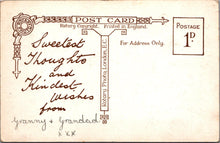 POST CARD
Rotary Copyright. Printed in England.
For Address Only.
POSTAGE
1D
Rotary Photo, London, E.C.
Sweetest
Thoughts
and
Kindest
Wishes
from
Granny & Grandad
x x x